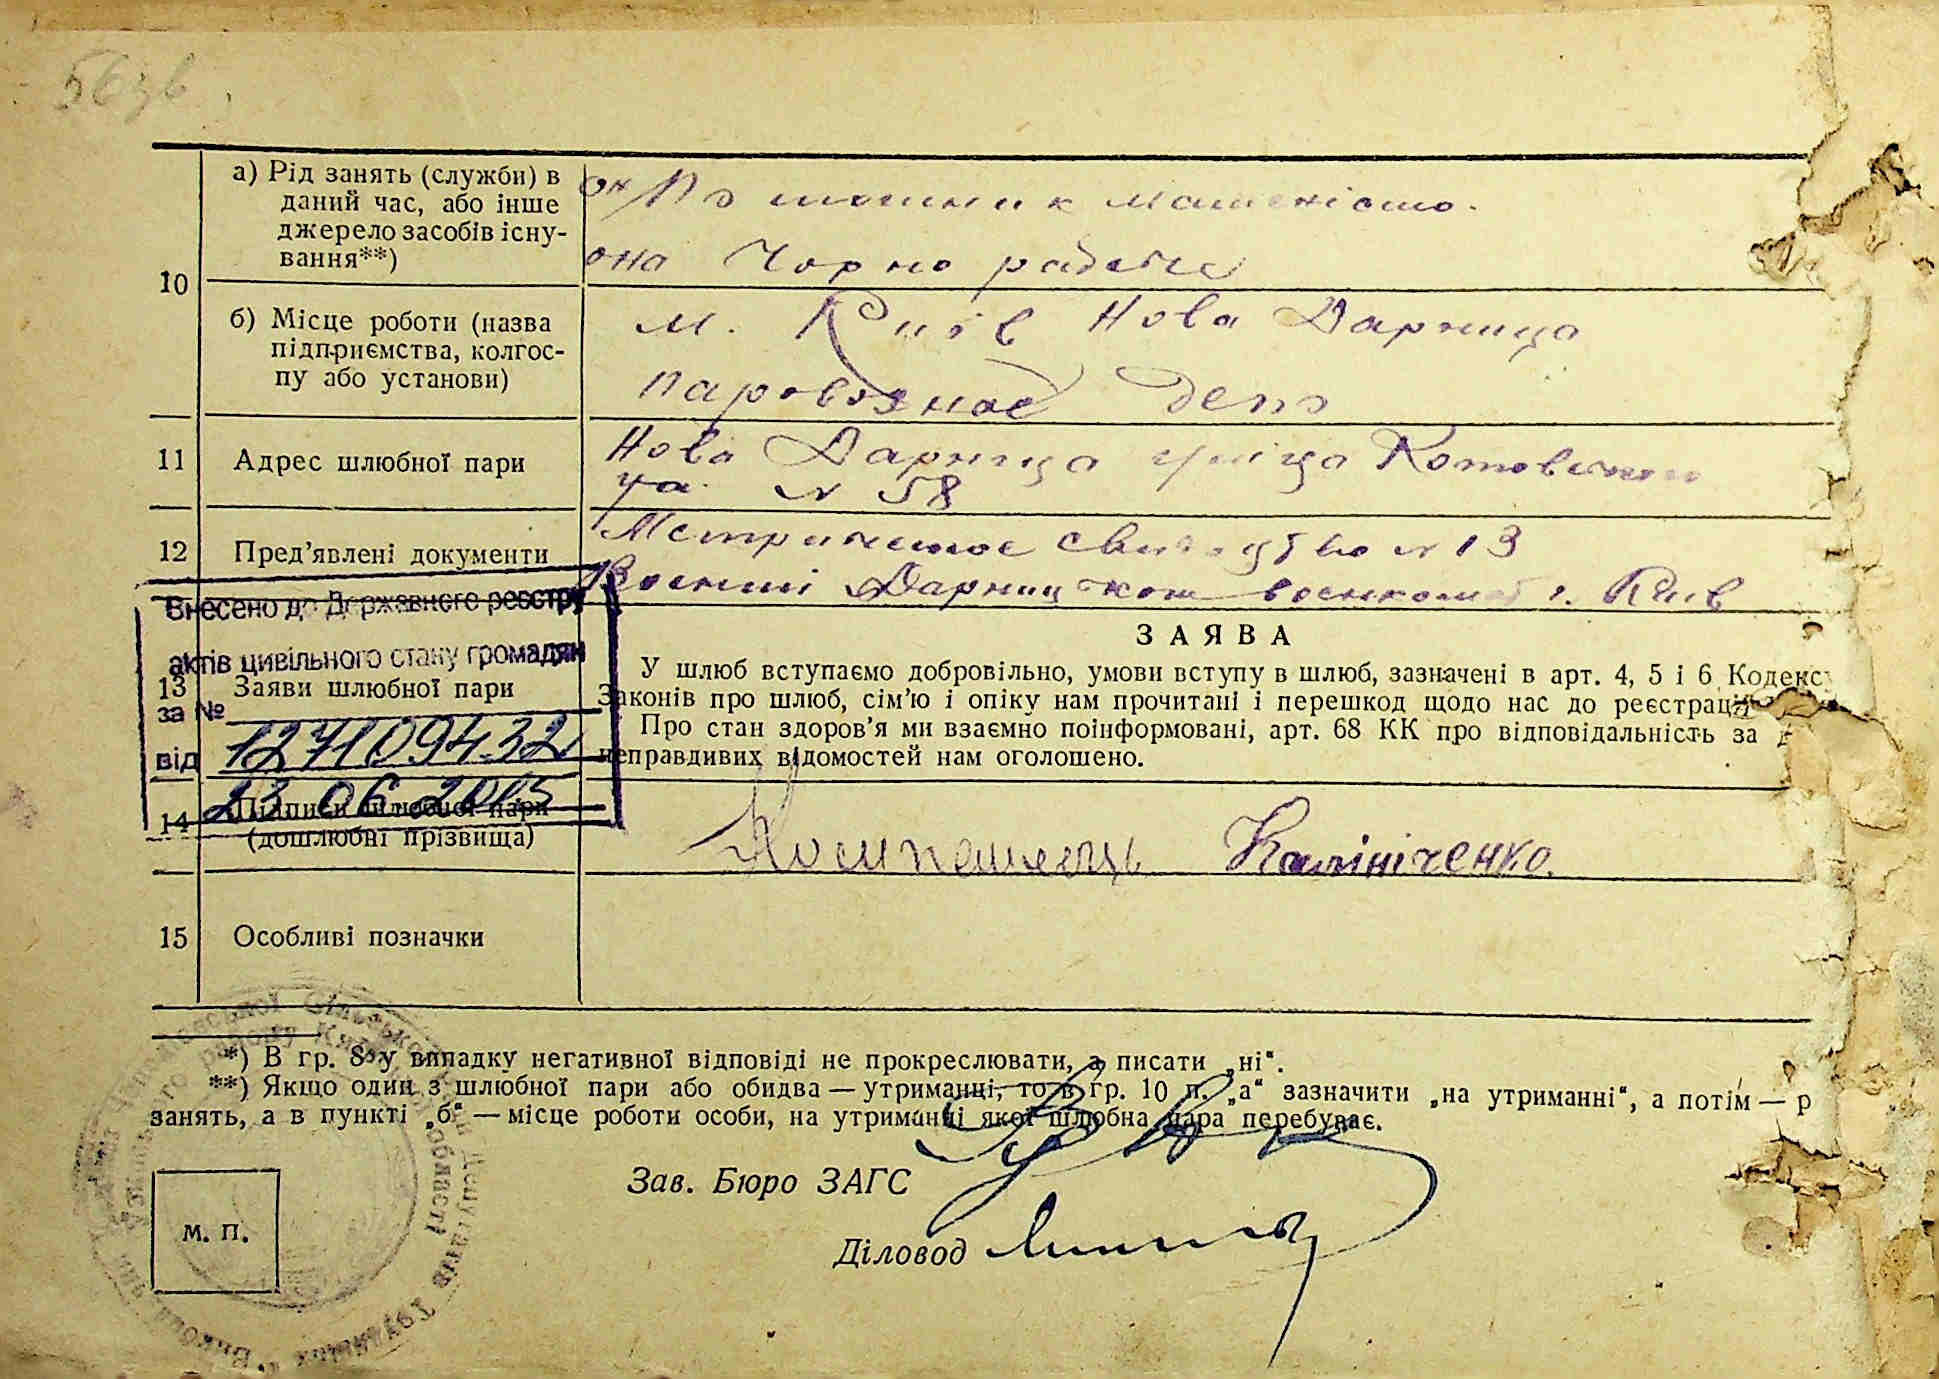 10
а) Рід занять (служби) в
даний час, або інше
джерело засобів існу-
вання**)
он Помошник машеніста.
она Чорно рабоча
б) Місце роботи (назва
підприємства, колгос-
пу або установи)
м. Київ Нова Дарница
паровозное депо
11 Адрес шлюбної пари
Нова Дарница улица
№ 58
12 Пред’явлені документи
№ 13
Военний Дарницким г. Киів
Внесено до Державного реєстру
актів цивільного стану громадян
за №
1271094.32
від
23.06.2015
13 Заяви шлюбної пари
ЗАЯВА
У шлюб вступаємо добровільно, умови вступу в шлюб, зазначені в арт. 4, 5 і 6 Кодексу
Законів про шлюб, сім’ю і опіку нам прочитані і перешкод щодо нас до реєстрації
Про стан здоров’я ми взаємно поінформовані, арт. 68 КК про відповідальність за
неправдивих відомостей нам оголошено.
14 Підписи шлюбної пари
(дошлюбні прізвища)
Калініченко.
15 Особливі позначки
*) В гр. 8 у випадку негативної відповіді не прокреслювати, а писати „ні“.
**) Якщо один з шлюбної пари або обидва — утриманці, то в гр. 10 п. „а“ зазначити „на утриманні“, а потім — р
занять, а в пункті „б“ — місце роботи особи, на утриманні якої шлюбна пара перебуває.
Зав. Бюро ЗАГС
Діловод
м. п.